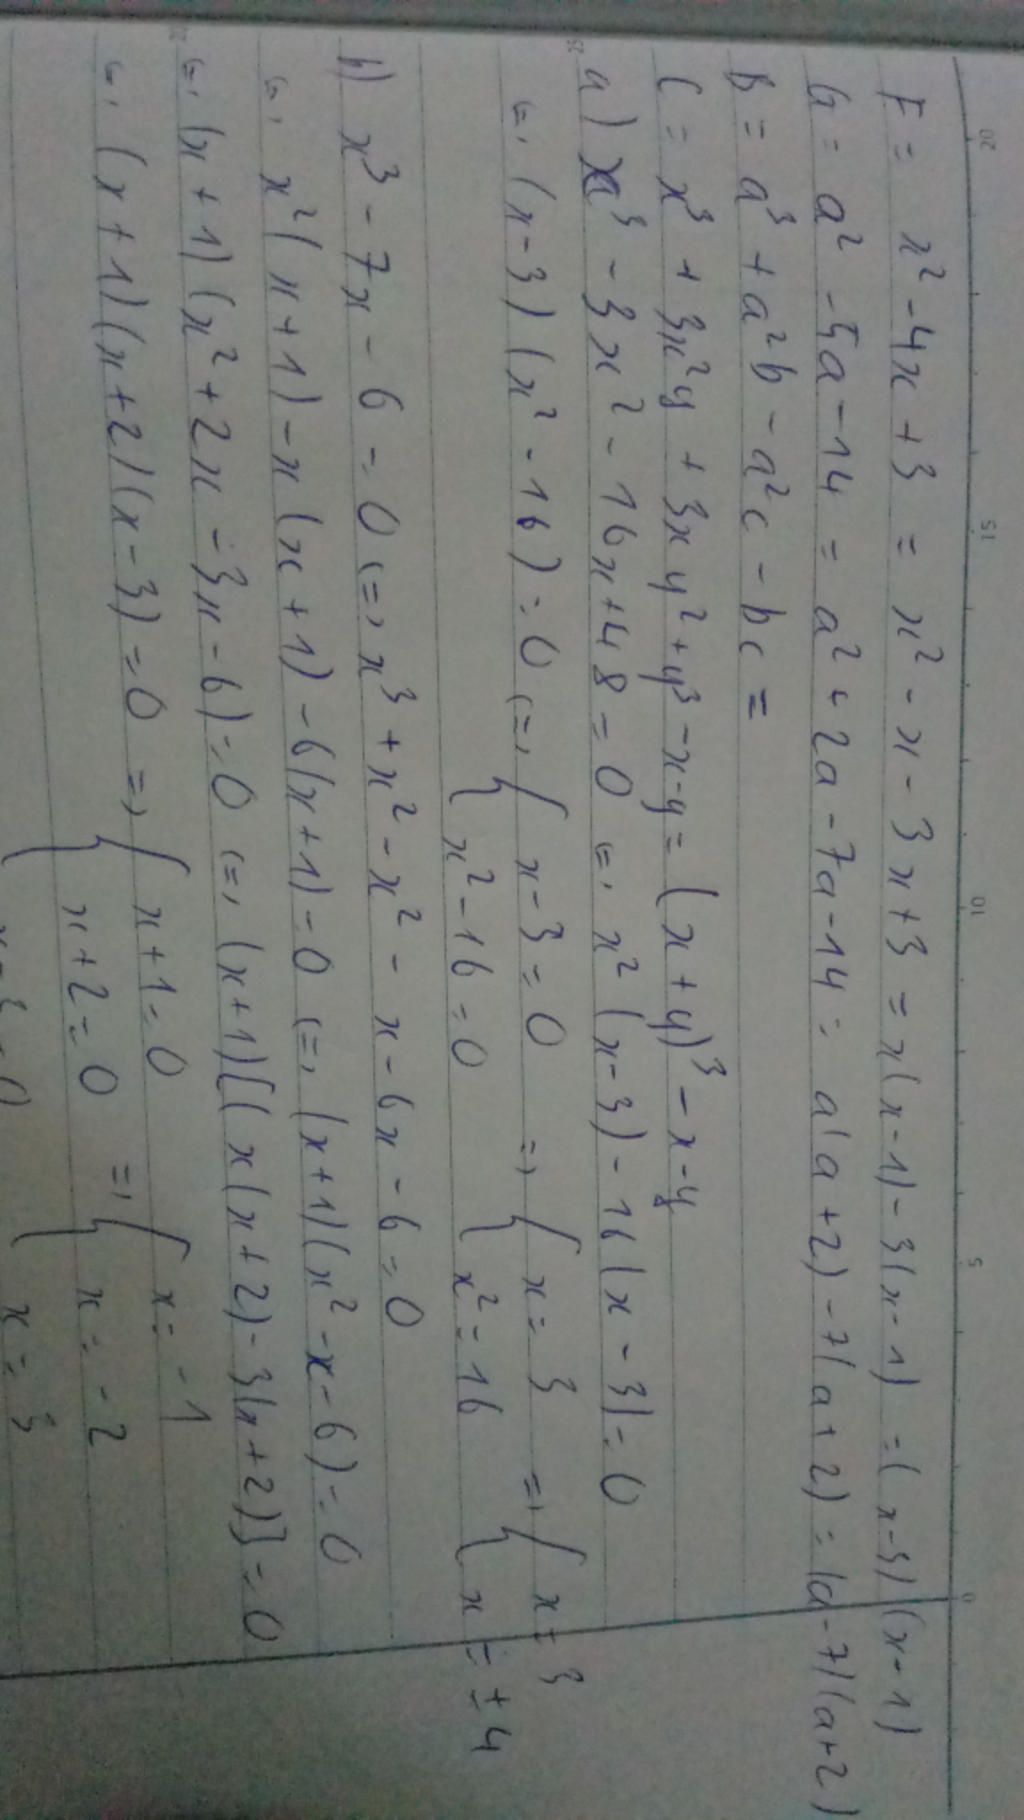 F = x² - 4x + 3 = x² - x - 3x + 3 = x(x - 1) - 3(x - 1) = (x - 3)(x - 1)
G = a² - 5a - 14 = a² + 2a - 7a - 14 = a(a + 2) - 7(a + 2) = (a - 7)(a + 2)
B = a³ + a²b - a²c - bc =
C = x³ + 3x²y + 3xy² + y³ - x - y = (x + y)³ - x - y
a) x³ - 3x² - 16x + 48 = 0 (=) x²(x - 3) - 16(x - 3) = 0
(=) (x - 3)(x² - 16) = 0 (=) { x - 3 = 0 =) { x = 3 =) { x = 3
x² - 16 = 0 x² = 16 x = ± 4
b) x³ - 7x - 6 = 0 (=) x³ + x² - x² - x - 6x - 6 = 0
(=) x²(x + 1) - x(x + 1) - 6(x + 1) = 0 (=) (x + 1)(x² - x - 6) = 0
(=) (x + 1)(x² + 2x - 3x - 6) = 0 (=) (x + 1)[(x(x + 2) - 3(x + 2)] = 0
(=) (x + 1)(x + 2)(x - 3) = 0 =) { x + 1 = 0 =) { x = -1
x + 2 = 0 x = -2
x - 3 = 0 x = 3
20
15
10
5
0
25